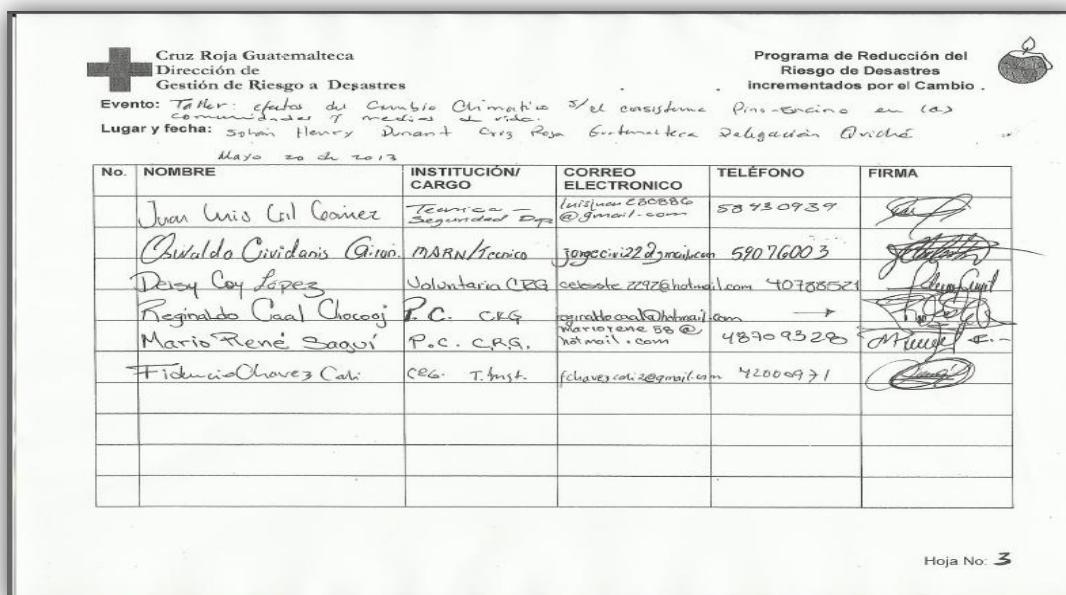 Cruz Roja Guatemalteca
Dirección de
Gestión de Riesgo a Desastres
Programa de Reducción del
Riesgo de Desastres
incrementados por el Cambio .
Evento: Taller: efectos del Cambio Climatico s/el ecosistema Pino-Encino en las
comunidades y medios de vida.
Lugar y fecha: Henry Dunant Cruz Roja Guatemalteca Delegación Quiché
Mayo 20 de 2013
No. NOMBRE INSTITUCIÓN/ CARGO CORREO ELECTRONICO TELÉFONO FIRMA
Juan Luis Gil Tecnica - Seguridad luisjuan280886 @gmail.com 58430939
Oswaldo Cividanis Giron. MARN/Tecnico jorgecivi22@gmail.com 59076003
Deisy Coy López Voluntaria CRG celeste2292@hotmail.com 40788521
Reginaldo Caal Chocooj P.C. CRG reginaldocaal@hotmail.com
Mario René Saquí P.C. C.R.G. mariorene58@ hotmail.com 48709328
Fidencio Chavez Cali T. Inst. fchavezcali2@gmail.com 42000971
Hoja No: 3